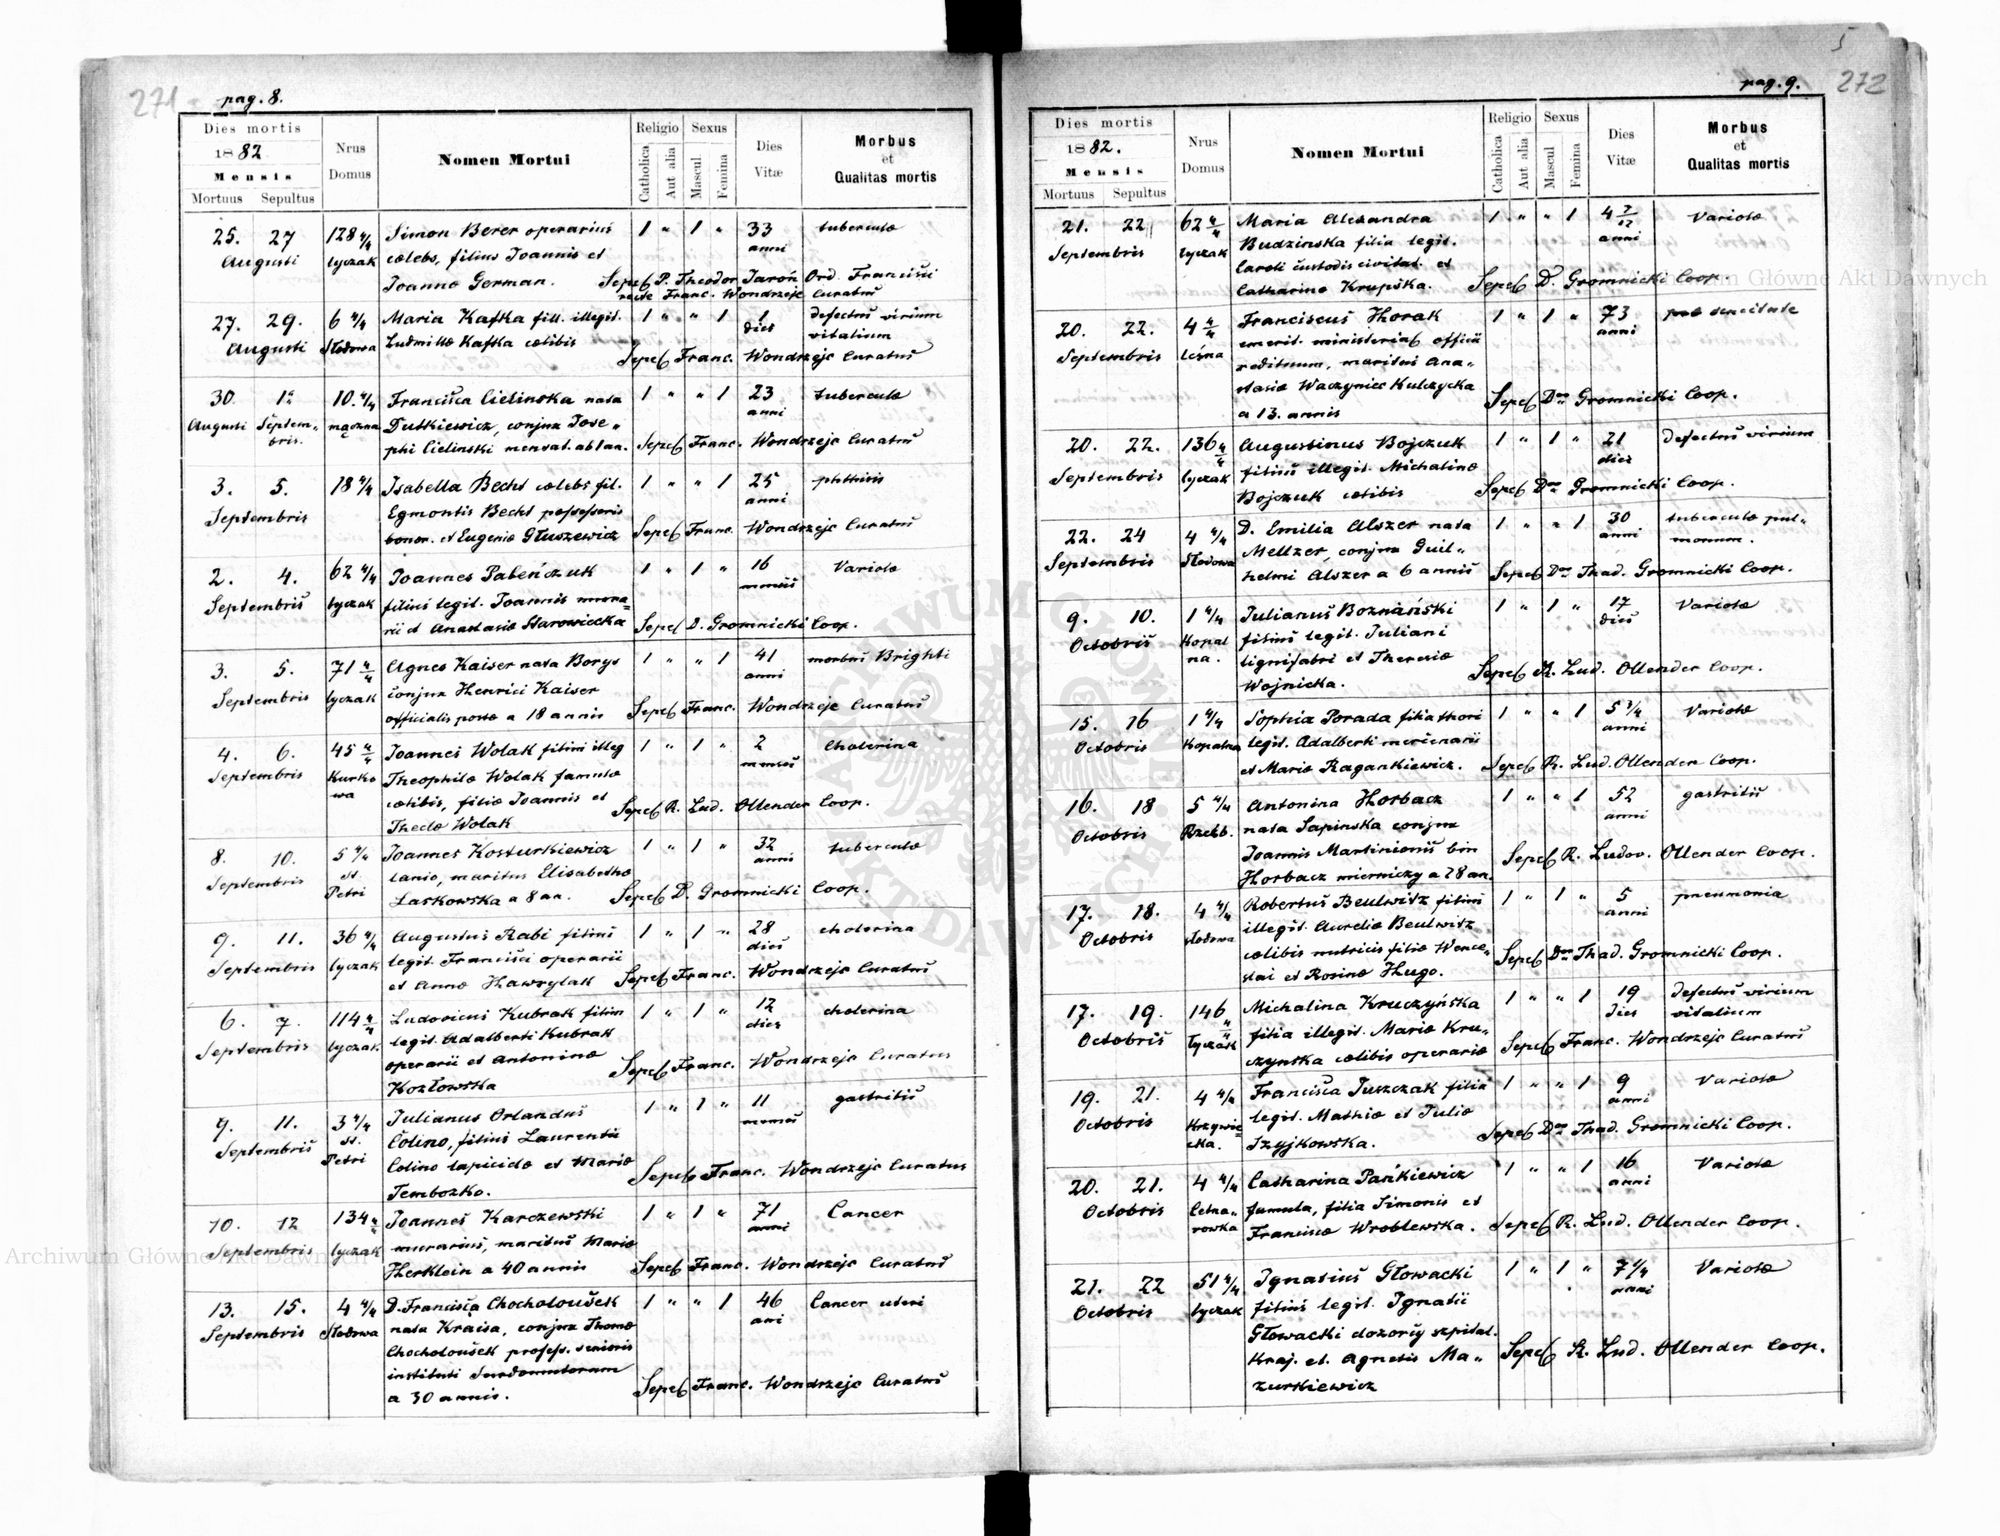 271
pag. 8.
Dies mortis
1882
Mensis
Mortuus Sepultus
Nrus Domus
Nomen Mortui
Religio
Catholica
Aut alia
Sexus
Mascul
Femina
Dies Vitæ
Morbus et Qualitas mortis
25. 27 128 4/4 Simon Berer operarius 1 " 1 " 33 tuberculæ
Augusti Lyczak cælebs, filius Joannis et anni
Joannæ German. Sepel. P. Theodor Jaroń Ord. Francisci
recte Franc. Wondrzejc Curatus
27. 29. 6 4/4 Maria Kafka fill. illegit. 1 " " 1 1 defectus virium
Augusti Słodowa Ludmillæ Kafka cælibis dies vitalium
Sepel Franc. Wondrzejc Curatus
30 1a 10. 4/4 Francisca Cielinska nata 1 " " 1 23 tuberculæ
Augusti Septem- mączna Dutkiewicz, conjux Jose- anni
bris. phi Cielinski mensat. ablaa. Sepel Franc. Wondrzejc Curatus
3. 5. 18 4/4 Isabella Becht cælebs fil. 1 " " 1 25 phthisis
Septembris Egmontis Becht possessoris anni
bonor. et Eugeniæ Głuszewicz Sepel Franc. Wondrzejc Curatus
2. 4. 62 4/4 Joannes Pabeńczuk 1 " 1 " 16 Variolæ
Septembris Lyczak filius legit. Joannis mura- menses
rii et Anastasiæ Starowiecka Sepel D. Gromnicki Coop.
3. 5. 71 4/4 Agnes Kaiser nata Borys 1 " " 1 41 morbus Brighti
Septembris Lyczak conjux Henrici Kaiser anni
officialis postæ a 18 annis Sepel Franc. Wondrzejc Curatus
4. 6. 45 4/4 Joannes Wolak filius illeg 1 " 1 " 2 Cholerina
Septembris Kurko Theophilæ Wolak famulæ menses
wa cælibis, filiæ Joannis et Sepel R. Lud. Ollender Coop.
Theclæ Wolak
8. 10. 5 4/4 Joannes Kosturkiewicz 1 " 1 " 32 tuberculæ
Septembris St. lanio, maritus Elisabethæ annis
Petri Laskowska a 8 an. Sepel D. Gromnicki Coop.
9. 11. 36 4/4 Augustus Rabi filius 1 " 1 " 28 cholerina
Septembris Lyczak legit. Francisci operarii dies
et Annæ Hawrylak Sepel Franc. Wondrzejc Curatus
6. 7. 114 4/4 Ludovicus Kubrak filius 1 " 1 " 12 cholerina
Septembris Lyczak legit. Adalberti Kubrak dies
operarii et Antoninæ Sepel Franc. Wondrzejc Curatus
Kozłowska
9. 11. 3 4/4 Julianus Orlandus 1 " 1 " 11 gastritis
Septembris St. Colino, filius Laurentii menses
Petri Colino lapicidæ et Mariæ Sepel Franc. Wondrzejc Curatus
Tembozko.
10. 12 134 4/4 Joannes Karczewski 1 " 1 " 71 Cancer
Septembris Lyczak murarius, maritus Mariæ anni
Herklein a 40 annis Sepel Franc. Wondrzejc Curatus
13. 15. 4 4/4 D. Francisca Chocholoušek 1 " " 1 46 Cancer uteri
Septembris Słodowa nata Kraisa, conjux Thomæ ani
Chocholoušek profess. senioris
instituti Surdomutorum
a 30 annis. Sepel Franc. Wondrzejc Curatus
5
pag. 9. 272
Dies mortis
1882.
Mensis
Mortuus Sepultus
Nrus Domus
Nomen Mortui
Religio
Catholica
Aut alia
Sexus
Mascul
Femina
Dies Vitæ
Morbus et Qualitas mortis
21. 22 62 4/4 Maria Alexandra 1 " " 1 4 7/12 Variolæ
Septembris Lyczak Budzinska filia legit. anni
Caroli custodis civitat. et
Catharinæ Krupska. Sepel D. Gromnicki Coop.
20. 22. 4 4/4 Franciscus Horak 1 " 1 " 73 senectute
Septembris Leśna emerit. ministerial officii anni
redituum, maritus Ana-
stasiæ Waczyniec Kulczycka Sepel Dnus Gromnicki Coop.
a 13. annis
20. 22. 136 4/4 Augustinus Bojczuk 1 " 1 " 21 Defectus virium
Septembris Lyczak filius illegit. Michalinæ dies
Bojczuk cælibis Sepel Dnus Gromnicki Coop.
22. 24 4 4/4 D. Emilia Alszer nata 1 " " 1 30 tuberculæ pul-
Septembris Słodowa Meltzer, conjux Guil- anni monum.
helmi Alszer a 6 annis Sepel Dnus Thad. Gromnicki Coop.
9. 10. 1 4/4 Julianus Boznański 1 " 1 " 17 Variolæ
Octobris Kopal filius legit. Juliani dies
na. lignifabri et Theresiæ Sepel R. Lud. Ollender Coop.
Wojnicka.
15. 16 1 4/4 Sophia Porada filia thori 1 " " 1 5 3/4 Variolæ
Octobris Kopalna legit. Adalberti mercenarii anni
et Mariæ Ragankiewicz. Sepel R. Lud. Ollender Coop.
16. 18 5 4/4 Antonina Horbacz 1 " " 1 52 gastritis
Octobris Rzeźb. nata Sapinska conjux anni
Joannis Martinionis bin Sepel R. Ludov. Ollender Coop.
Horbacz mierniczy a 28 an.
17. 18. 4 4/4 Robertus Beulwitz filius 1 " 1 " 5 pneumonia
Octobris Słodowa illegit. Aureliæ Beulwitz anni
cælibis nutricis filiæ Wence- Sepel Dnus Thad. Gromnicki Coop.
slai et Rosinæ Hugo.
17. 19. 146 4/4 Michalina Kruczyńska 1 " " 1 19 Defectus virium
Octobris Łyczak filia illegit. Mariæ Kru- dies vitalium
czynska cælibis operariæ Sepel Franc. Wondrzejc Curatus
19. 21. 4 4/4 Francisca Juszczak filia 1 " " 1 9 Variolæ
Octobris Krzywic- legit. Mathiæ et Juliæ anni
cka. Izyjkowska. Sepel Dnus Thad. Gromnicki Coop.
20. 21. 4 4/4 Catharina Pańkiewicz 1 " " 1 16 Variolæ
Octobris Cetna- famula, filia Simonis et anni
rowka Franciscæ Wroblewska. Sepel R. Lud. Ollender Coop.
21. 22 51 4/4 Ignatius Głowacki 1 " 1 " 7 1/4 Variolæ
Octobris Lyczak filius legit. Ignatii anni
Głowacki dozorcy szpital.
Kraj. et. Agnetis Ma- Sepel R. Lud. Ollender Coop.
zurkiewicz
Archiwum Główne Akt Dawnych